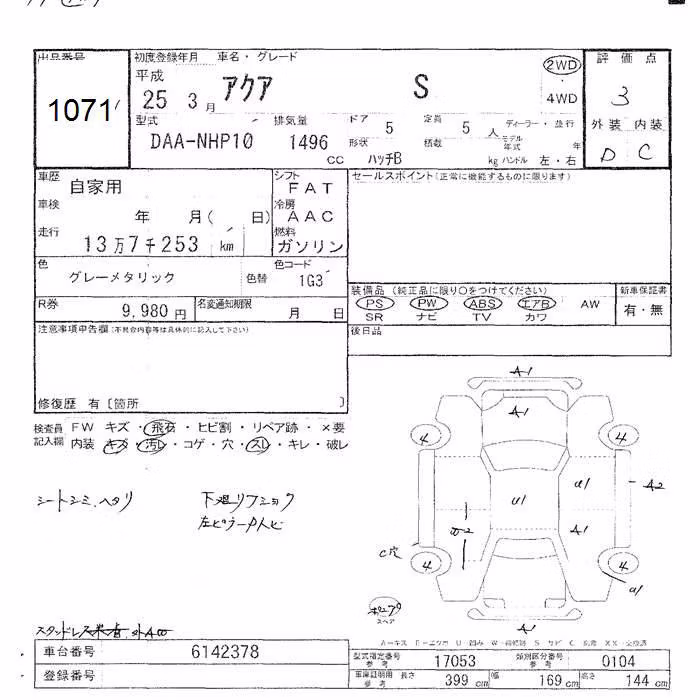 出品番号
1071
初度登録年月 車名・グレード
平成
25 3月 アクア S
2WD
4WD
型式 排気量 ドア 定員 ディーラー・並行
DAA-NHP10 1496 CC 5 5人
形状 積数 モデル年式 年
ハッチB kg ハンドル 左・右
評価点
3
外装 内装
D C
車歴 自家用
シフト FAT
車検 年 月( 日)
冷房 AAC
走行 13万7千253 km
燃料 ガソリン
セールスポイント(正常に機能するものに限ります)
色 グレーメタリック 色替
色コード 1G3
R券 9,980円 名変通知期限 月 日
装備品 (純正品に限り○をつけてください)
PS PW ABS エアB AW
SR ナビ TV カワ
新車保証書
有・無
注意事項申告欄(不具合内容等は具体的に記入して下さい)
後日品
修復歴 有〔箇所 〕
検査員記入欄 FW キズ・飛石・ヒビ割・リペア跡・×要
内装 キズ・汚レ・コゲ・穴・スレ・キレ・破レ
シートシミ、ヘタリ
下廻リフショク
A1
A1
4
4
U1
U1
A2
A1
C穴
4
4
U1
スペア
A1
スタッドレス
車台番号 6142378
登録番号
型式指定番号 参考 17053 類別区分番号 参考 0104
車庫証明用 参考 長さ 399 cm 幅 169 cm 高さ 144 cm